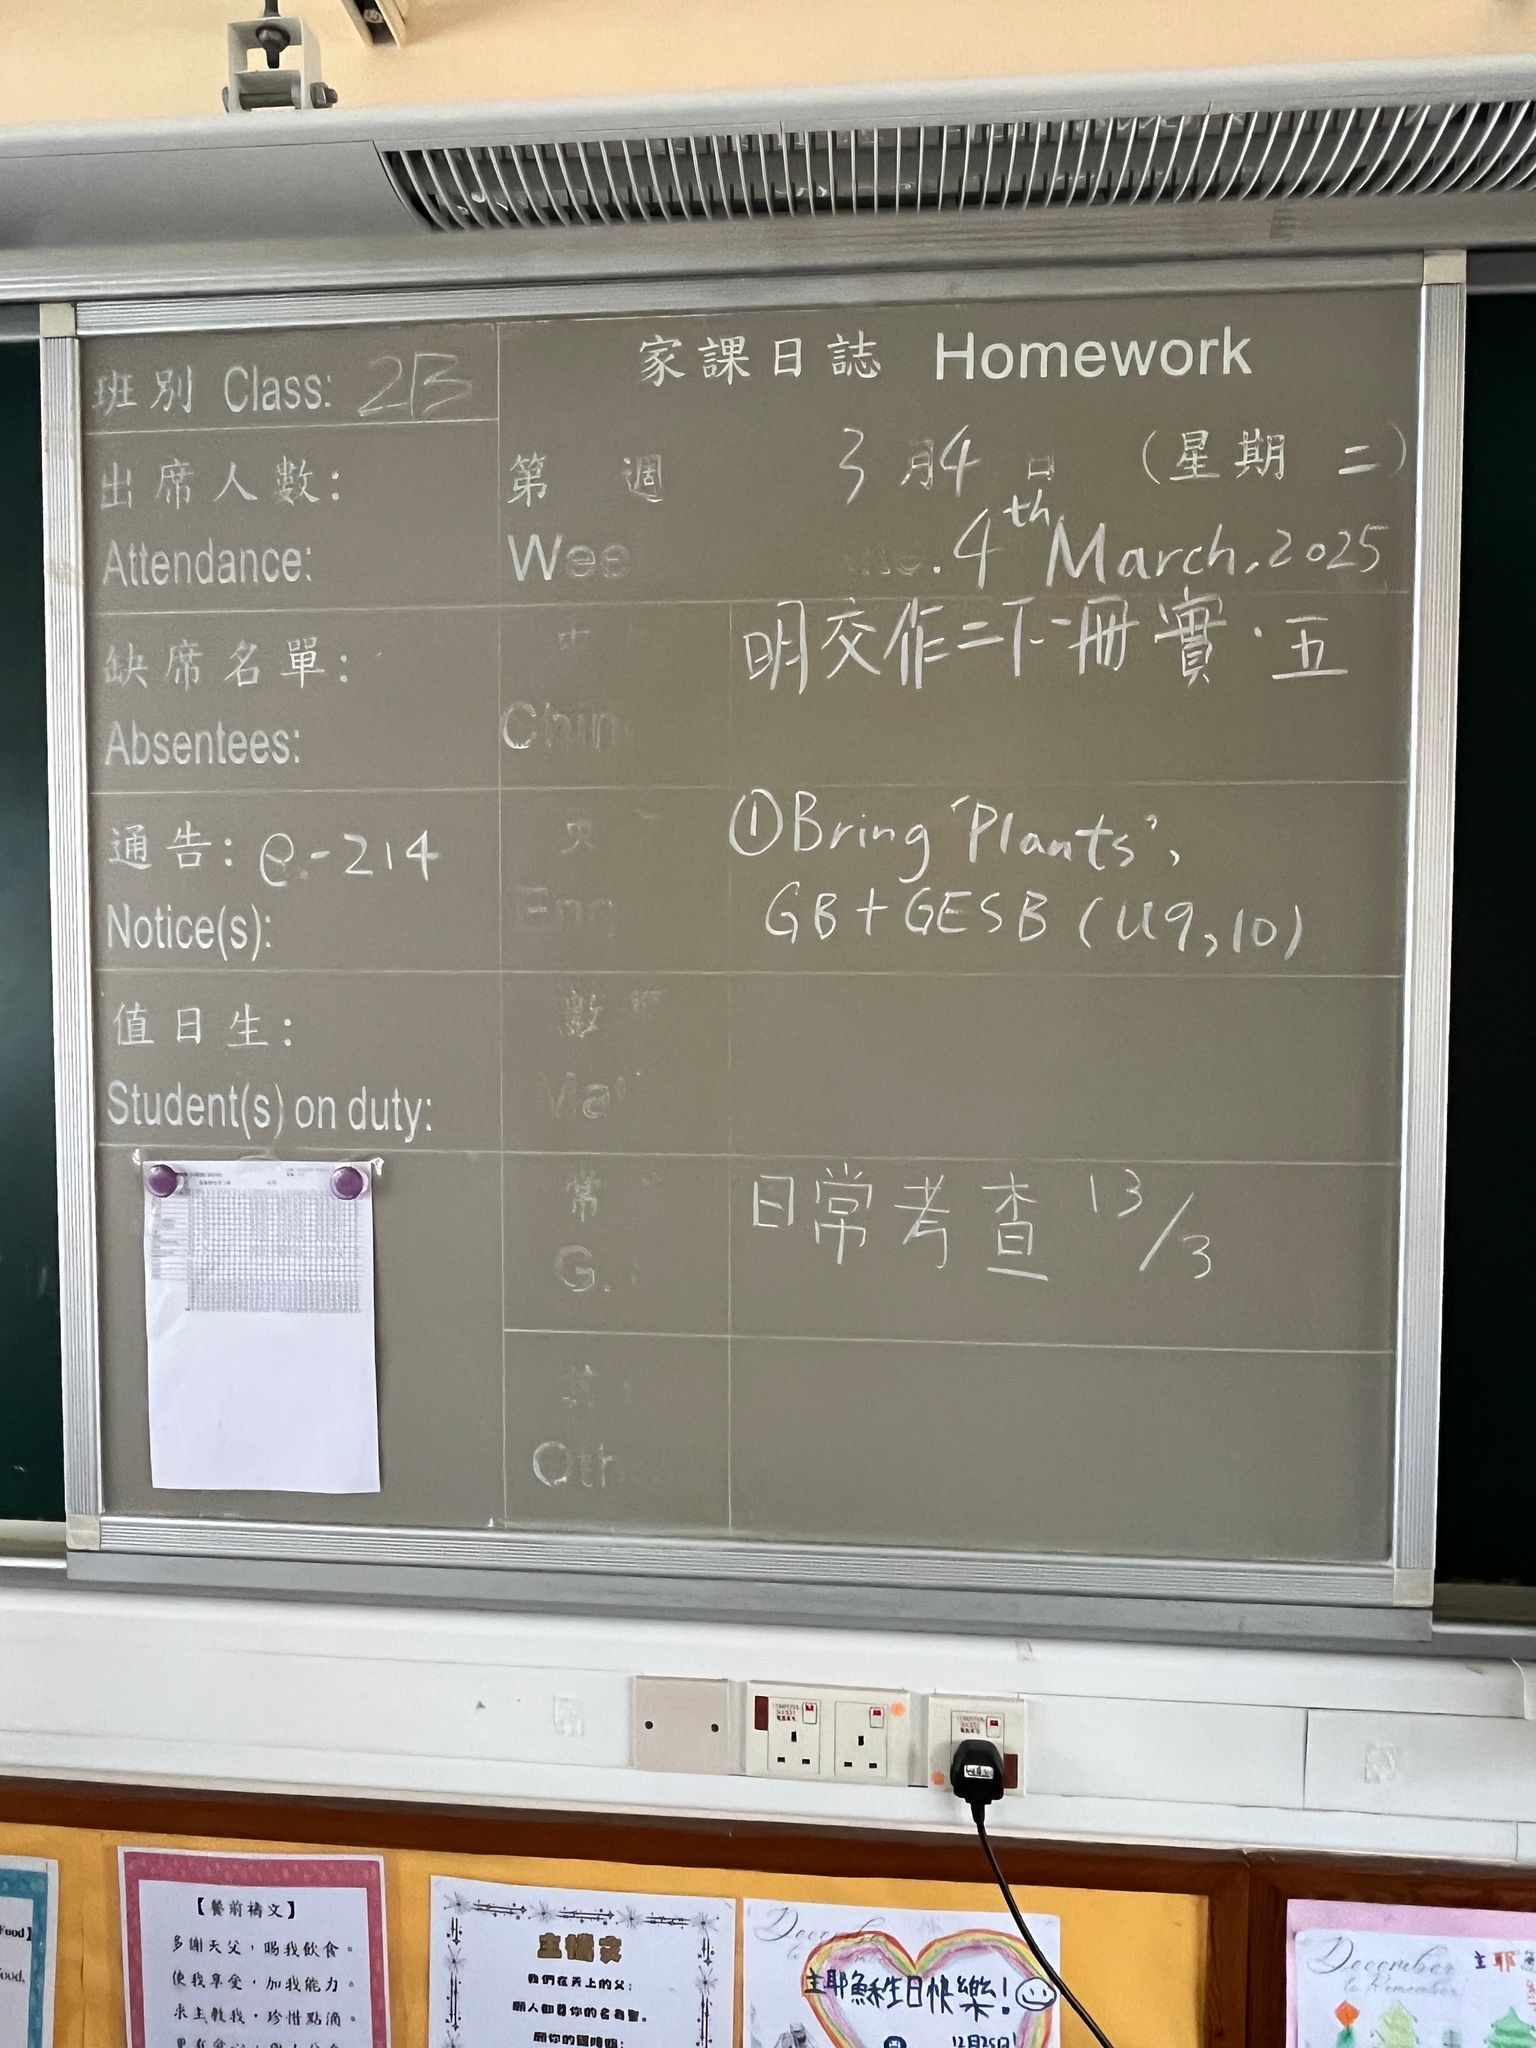 家課日誌 Homework
班別 Class: 2B
出席人數:
Attendance:
第 週 3月4日 (星期二)
4th March, 2025
缺席名單:
Absentees:
明交作二下一冊實·五
通告: e-214
Notice(s):
①Bring 'Plants',
GB+GESB (U9,10)
值日生:
Student(s) on duty:
數
常
G.
日常考查 13/3
Oth
【餐前禱文】
多謝天父,賜我飲食。
使我享受,加我能力。
求主教我,珍惜點滴。
主禱文
我們在天上的父:
願人都尊你的名為聖。
願你的國降臨;
December
to Remember
主耶穌生日快樂!
12月25日!
December
to Remember
主耶